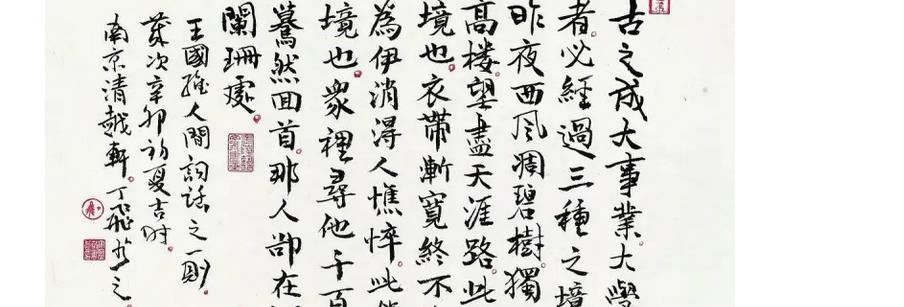 古之成大事業大學
者必經過三種之境
昨夜西風凋碧樹獨
高楼望盡天涯路此
境也衣帶漸寬終不
為伊消得人憔悴此
境也眾裡尋他千百
驀然回首那人卻在
闌珊處
王國維人間詞話之一則
歲次辛卯初夏吉时
南京清越軒丁飛书之